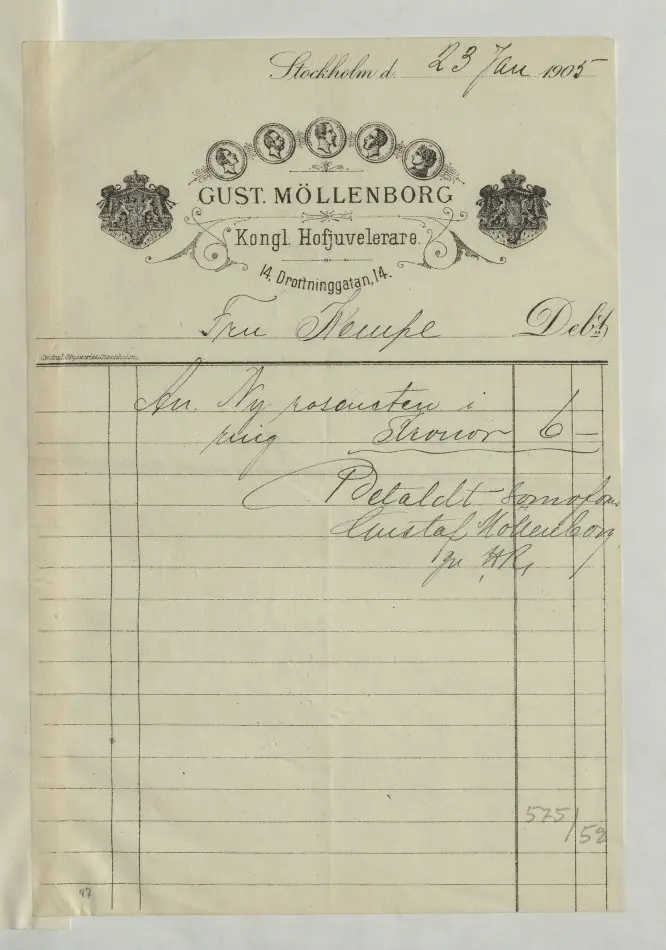 Stockholm d. 23 Jan 1905
GUST. MÖLLENBORG
Kongl. Hofjuvelerare.
14, Drottninggatan, 14.
Fru Kempe Debt
Central-Tryckeriet, Stockholm.
An. Ny rosensten i
ring Kronor 6 —
Betaldt som ofvan
Gustaf Möllenborg
575/52
47